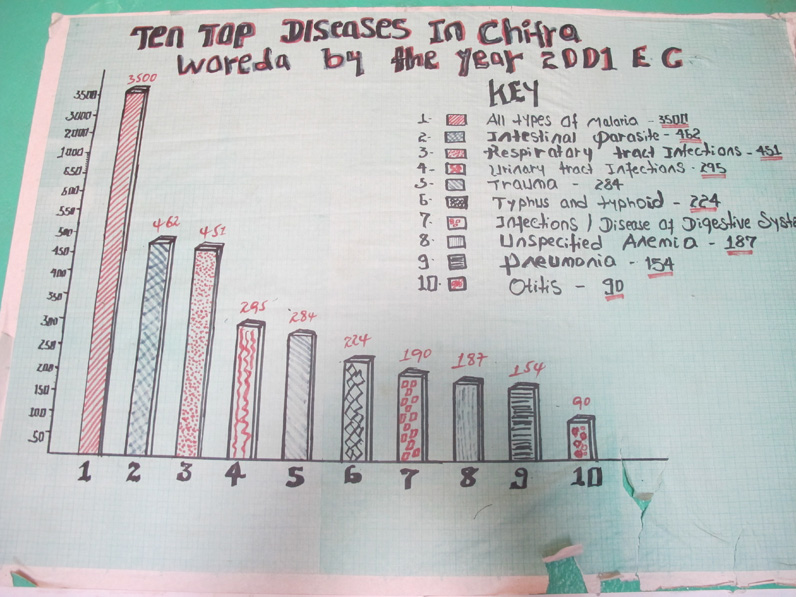 Ten Top Diseases In Chifra
Woreda by the year 2001 E C
KEY
1- All types of Malaria - 3500
2- Intestinal Parasite - 462
3- Respiratory tract Infections - 451
4- Urinary tract Infections - 295
5- Trauma - 284
6- Typhus and typhoid - 224
7 Infections / Disease of Digestive Syste
8 Unspecified Anemia - 187
9 pneumonia - 154
10- Otitis - 90
3500
3000
2000
1000
650
600
550
500
450
400
350
300
250
200
150
100
50
3500
462
451
295
284
224
190
187
154
90
1 2 3 4 5 6 7 8 9 10